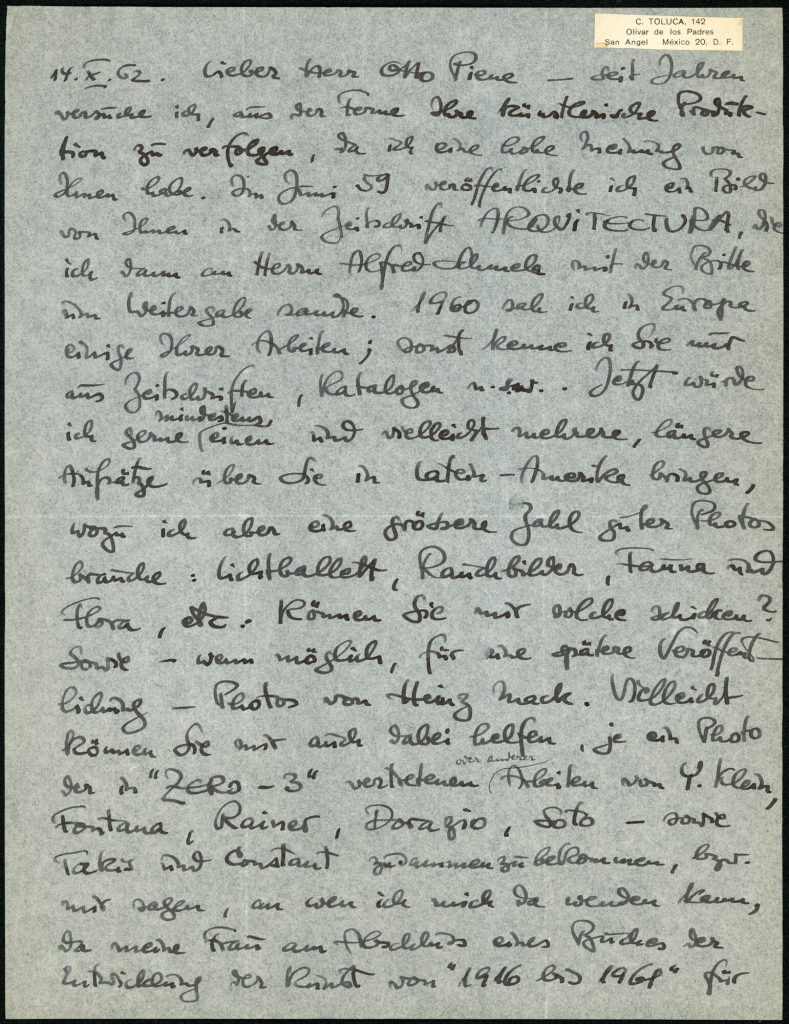 C. TOLUCA, 142
Olivar de los Padres
San Angel México 20, D. F.
14.X.62. Lieber Herr Otto Piene – seit Jahren
versuche ich, aus der Ferne Ihre künstlerische Produk-
tion zu verfolgen, da ich eine hohe Meinung von
Ihnen habe. Im Juni 59 veröffentlichte ich ein Bild
von Ihnen in der Zeitschrift ARQUITECTURA, die
ich dann an Herrn Alfred Schmela mit der Bitte
um Weitergabe sandte. 1960 sah ich in Europa
einige Ihrer Arbeiten; sonst kenne ich Sie nur
aus Zeitschriften, Katalogen u.s.w.. Jetzt würde
ich gerne mindestens einen und vielleicht mehrere, längere
Aufsätze über Sie in Latein-Amerika bringen,
wozu ich aber eine grössere Zahl guter Photos
brauche: Lichtballett, Rauchbilder, Fauna und
Flora, etc. Können Sie mir solche schicken?
Sowie – wenn möglich, für eine spätere Veröffent-
lichung – Photos von Heinz Mack. Vielleicht
können Sie mir auch dabei helfen, je ein Photo
der in "ZERO-3" vertretenen oder anderer Arbeiten von Y. Klein,
Fontana, Rainer, Dorazio, Soto – sowie
Takis und Constant zusammenzubekommen, bzw.
mir sagen, an wen ich mich da wenden kann,
da meine Frau am Abschluss eines Buches der
Entwicklung der Kunst von "1916 bis 1961" für